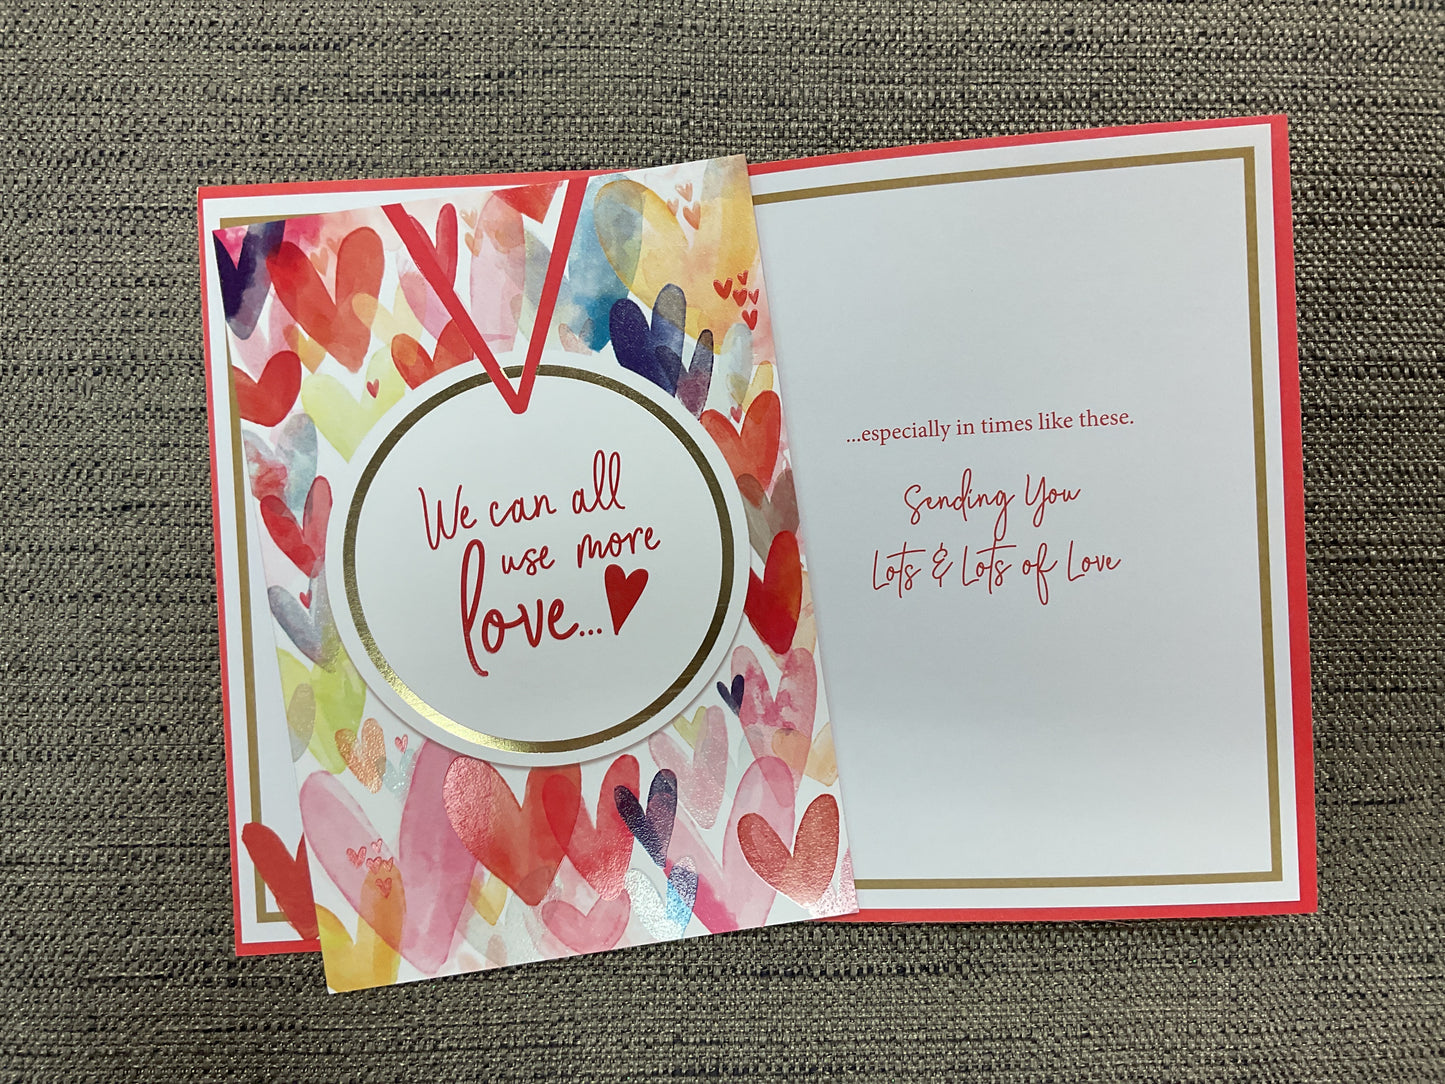 We can all
use more
love...
...especially in times like these.
Sending You
Lots & Lots of Love